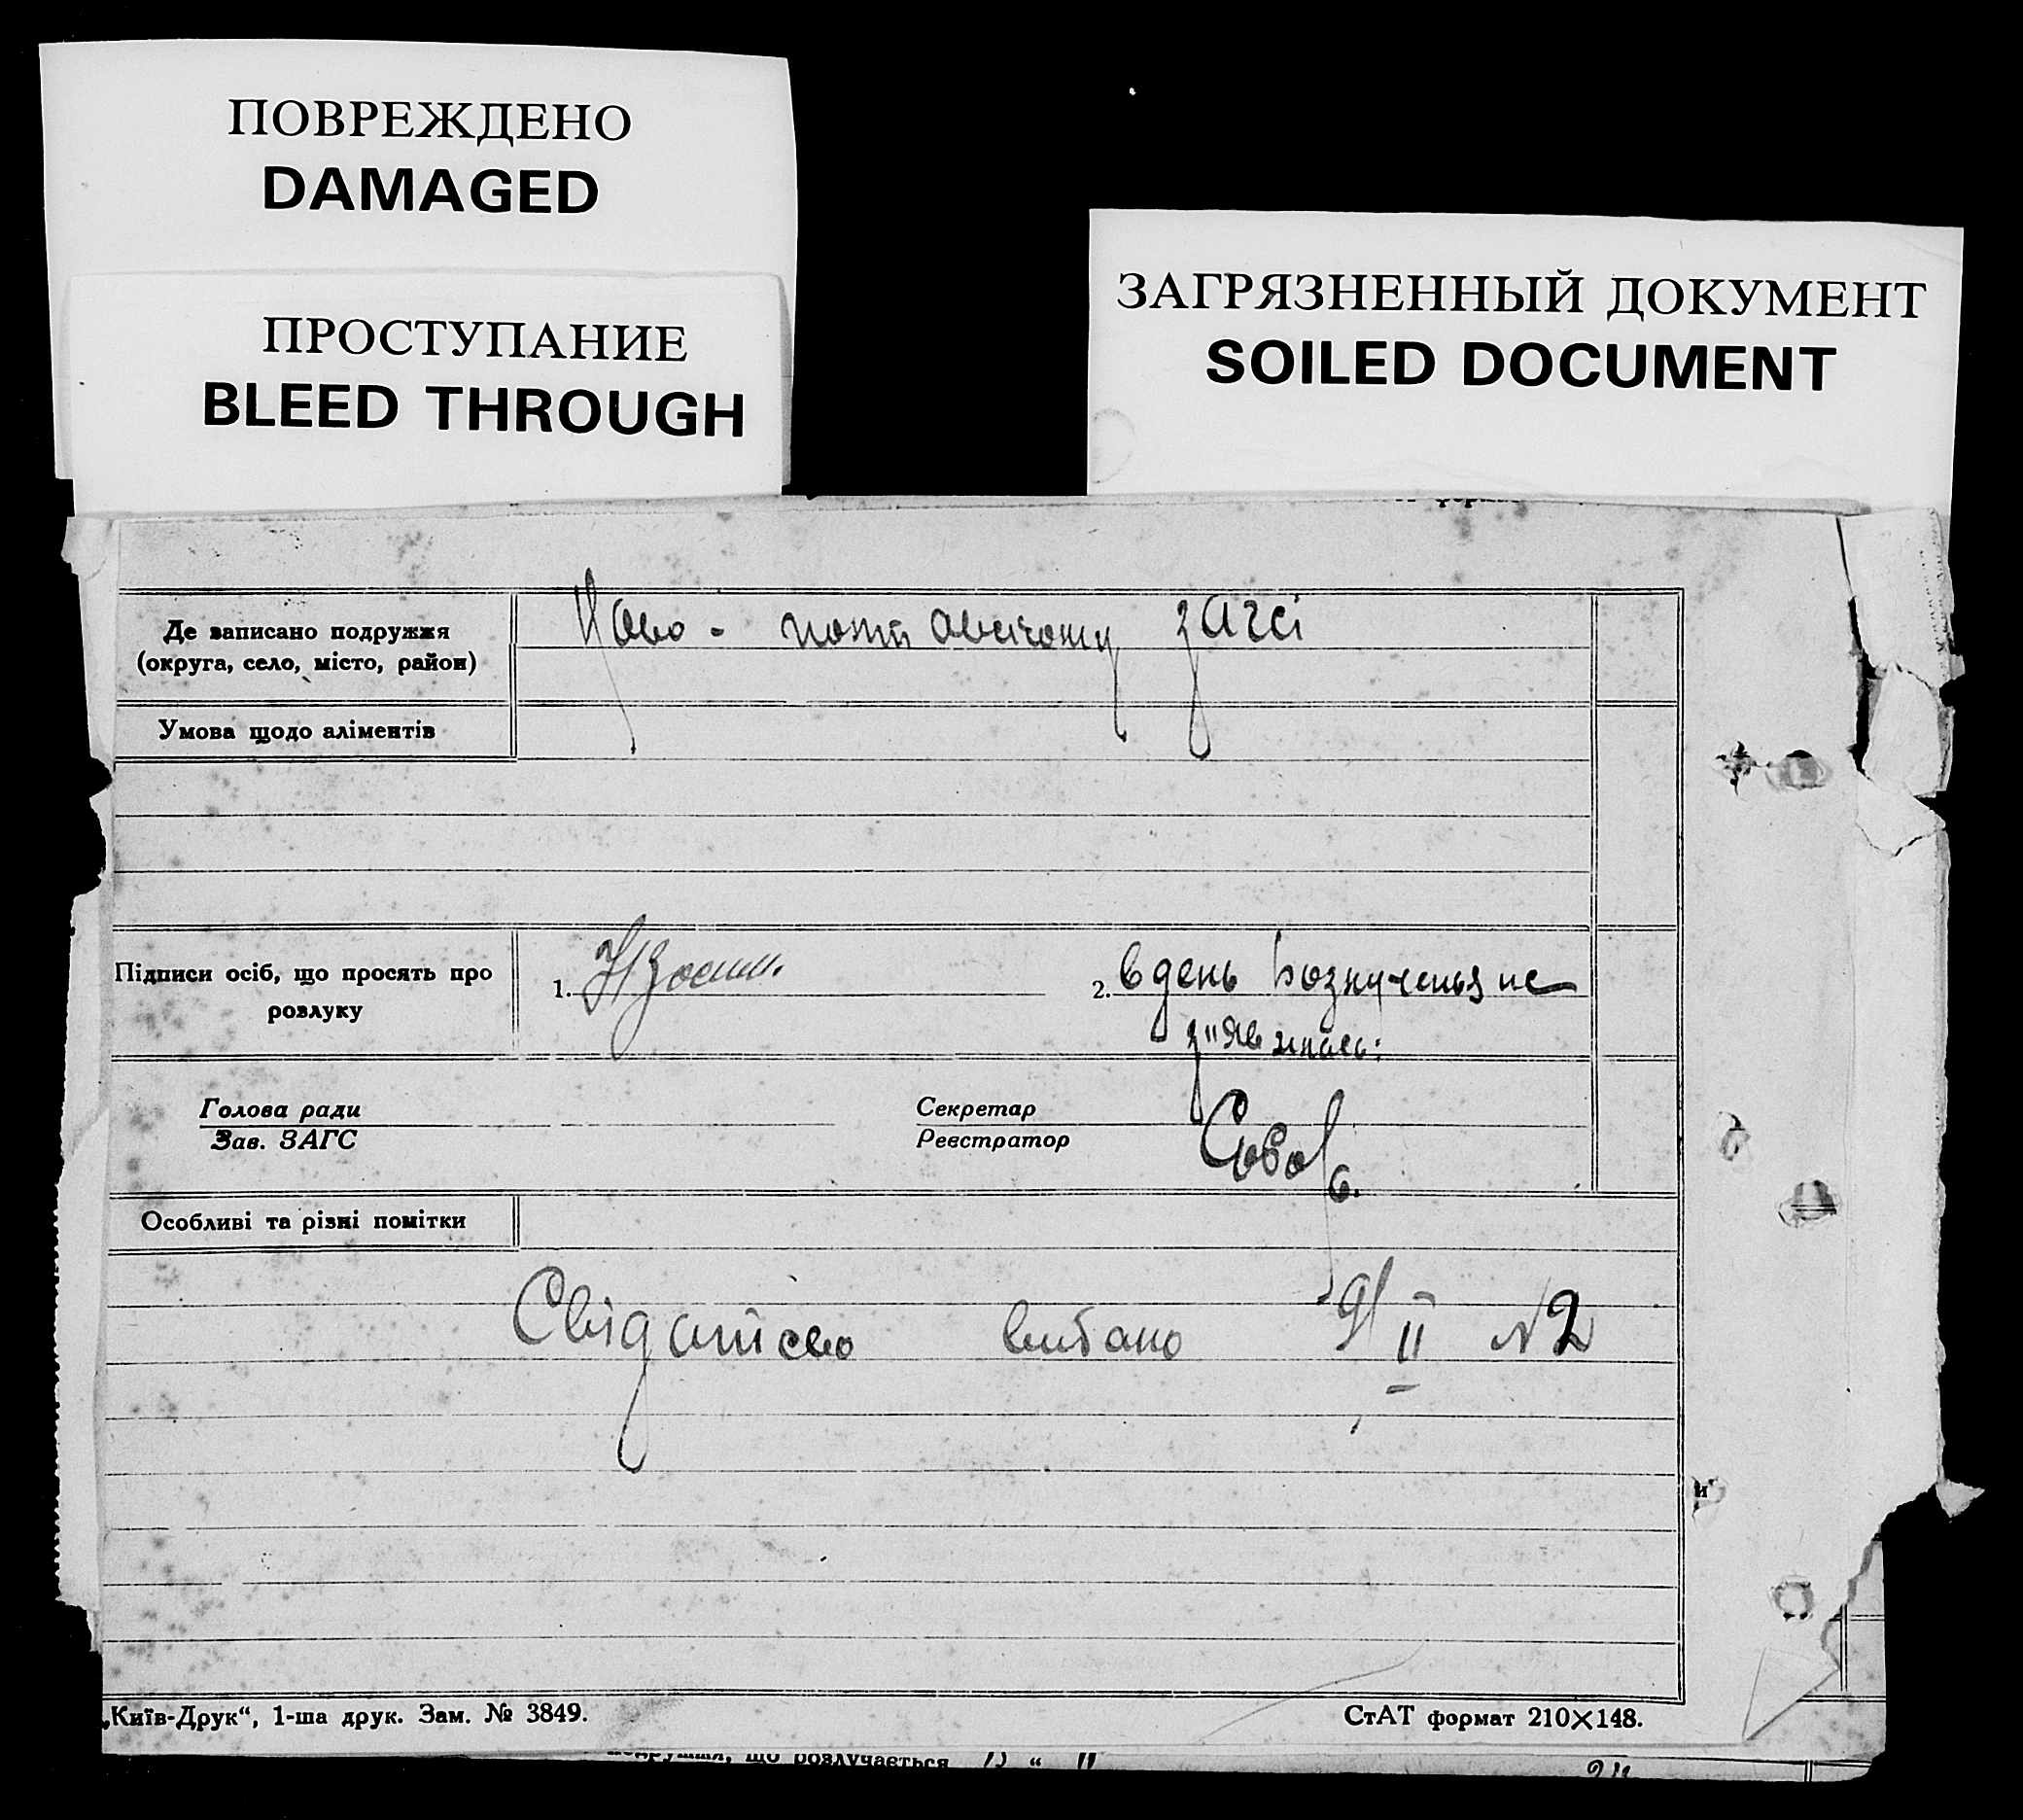 ПОВРЕЖДЕНО
DAMAGED
ПРОСТУПАНИЕ
BLEED THROUGH
ЗАГРЯЗНЕННЫЙ ДОКУМЕНТ
SOILED DOCUMENT
Де записано подружжя
(округа, село, місто, район)
загсі
Умова щодо аліментів
Підписи осіб, що просять про
розлуку
1.
2. в день не
з"явилась.
Голова ради
Зав. ЗАГС
Секретар
Реєстратор
Особливі та різні помітки
Свідоцтво видано 9/II №2
„Київ-Друк“, 1-ша друк. Зам. № 3849.
СтАТ формат 210×148.
що розлучається